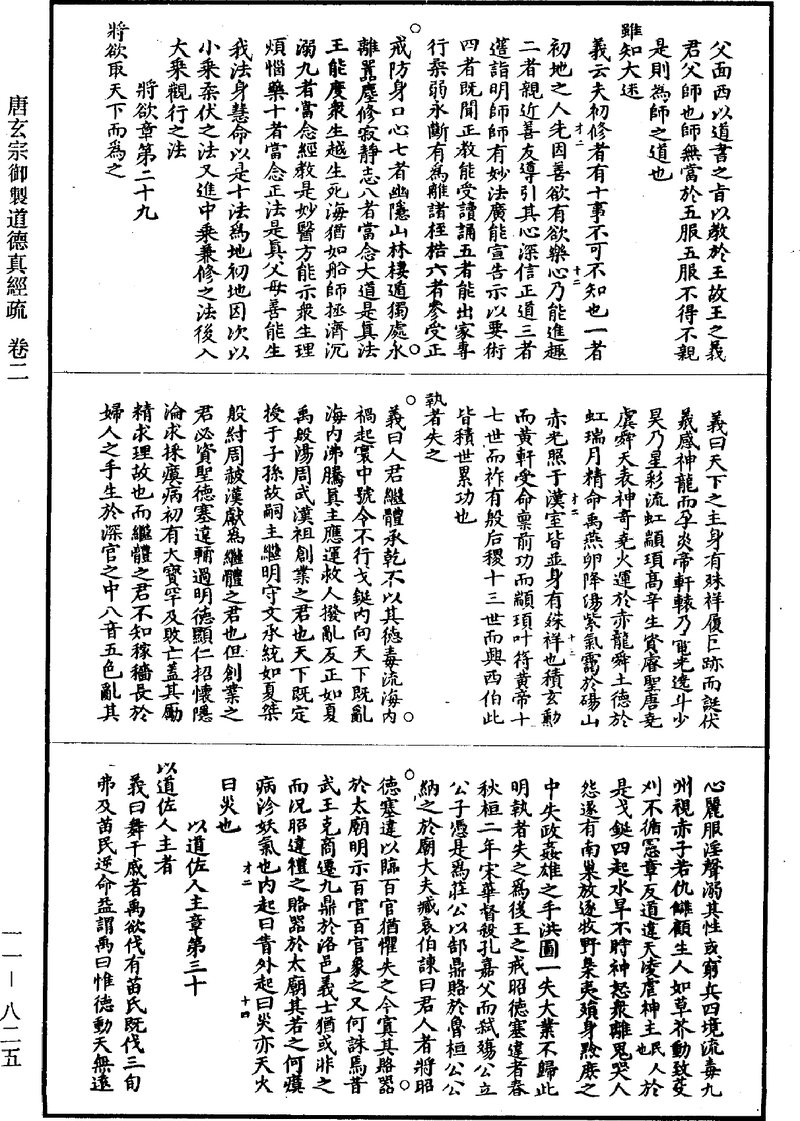 父面西以道書之旨以教於王故王之義
君父師也師無當於五服五服不得不親
是則為師之道也
雖知大迷
義云夫初修者有十事不可不知也一者
才二
十二
初地之人先因善欲有欲樂心乃能進趣
二者親近善友導引其心深信正道三者
選詣明師師有妙法廣能宣告示以要術
四者既聞正教能受讀誦五者能出家專
行柔弱永斷有為離諸桎梏六者參受正
戒防身口心七者幽隱山林棲遁獨處永
離囂塵修寂靜志八者當念大道是真法
王能度衆生越生死海猶如船師拯濟沉
溺九者當念經教是妙醫方能示衆生理
煩惱藥十者當念正法是真父母善能生
我法身慧命以是十法為地初地因次以
小乘柰伏之法又進中乘兼修之法後入
大乘觀行之法
將欲章第二十九
將欲取天下而為之
義曰天下之主身有殊祥履巨跡而誕伏
羲感神龍而孕炎帝軒轅乃電光遶斗少
昊乃星彩流虹顓頊高辛生資睿聖唐堯
虞舜天表神奇堯火運於赤龍舜土德於
虹瑞月精命禹燕卵降湯紫氣靄於碭山
才二
十二
赤光照于漢室皆並身有殊祥也積玄勳
而黃軒受命稟前功而顓頊叶符黃帝十
七世而祚有殷后稷十三世而興西伯此
皆積世累功也
執者失之
義曰人君繼體承乾不以其德毒流海內
禍起寰中號令不行戈鋋內向天下既亂
海內沸騰真主應運救人撥亂反正如夏
禹殷湯周武漢祖創業之君也天下既定
授于子孫故嗣主繼明守文承統如夏桀
殷紂周赧漢獻為繼體之君也但創業之
君必資聖德塞違輔過明德顯仁招懷隱
淪求採瘼病初有大寶罕及敗亡蓋其勵
精求理故也而繼體之君不知稼穡長於
婦人之手生於深宮之中八音五色亂其
心麗服淫聲溺其性或窮兵四境流毒九
州視赤子若仇讎顧生人如草芥動致芟
刈不循憲章反道違天凌虐神主民人於
也
是戈鋋四起水旱不時神怒衆離鬼哭人
怨遂有南巢放逐牧野梟夷頸身黔廢之
中失政姦雄之手洪圖一失大業不歸此
明執者失之為後王之戒昭德塞違者春
秋桓二年宋華督殺孔嘉父而弒殤公立
公子憑是為莊公以郜鼎賂於魯桓公公
納之於廟大夫臧哀伯諫曰君人者將昭
德塞違以臨百官猶懼失之今寘其賂器
於太廟明示百官百官象之又何誅焉昔
武王克商遷九鼎於洛邑義士猶或非之
而況昭違禮之賂器於太廟其若之何瘼
病沴妖氣也內起曰眚外起曰災亦天火
才二
十四
曰災也
以道佐人主章第三十
以道佐人主者
義曰舞干戚者禹欲伐有苗氏既伐三旬
弗及苗民逆命益謂禹曰惟德動天無遠
唐玄宗御製道德真經疏 卷二
一一—八二五